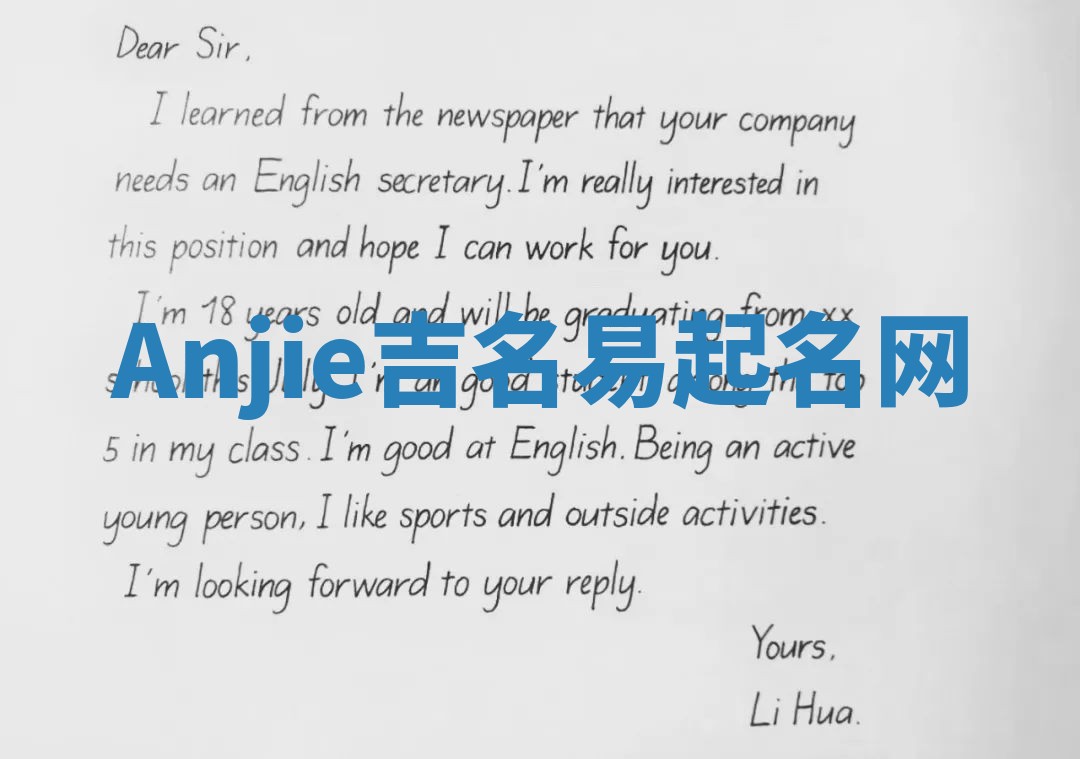 Dear Sir,
I learned from the newspaper that your company
needs an English secretary. I'm really interested in
this position and hope I can work for you.
I'm 18 years old and will be graduating from xx
Anjie吉名易起名网
school this July. I'm a good student among the top
5 in my class. I'm good at English. Being an active
young person, I like sports and outside activities.
I'm looking forward to your reply.
Yours,
Li Hua.